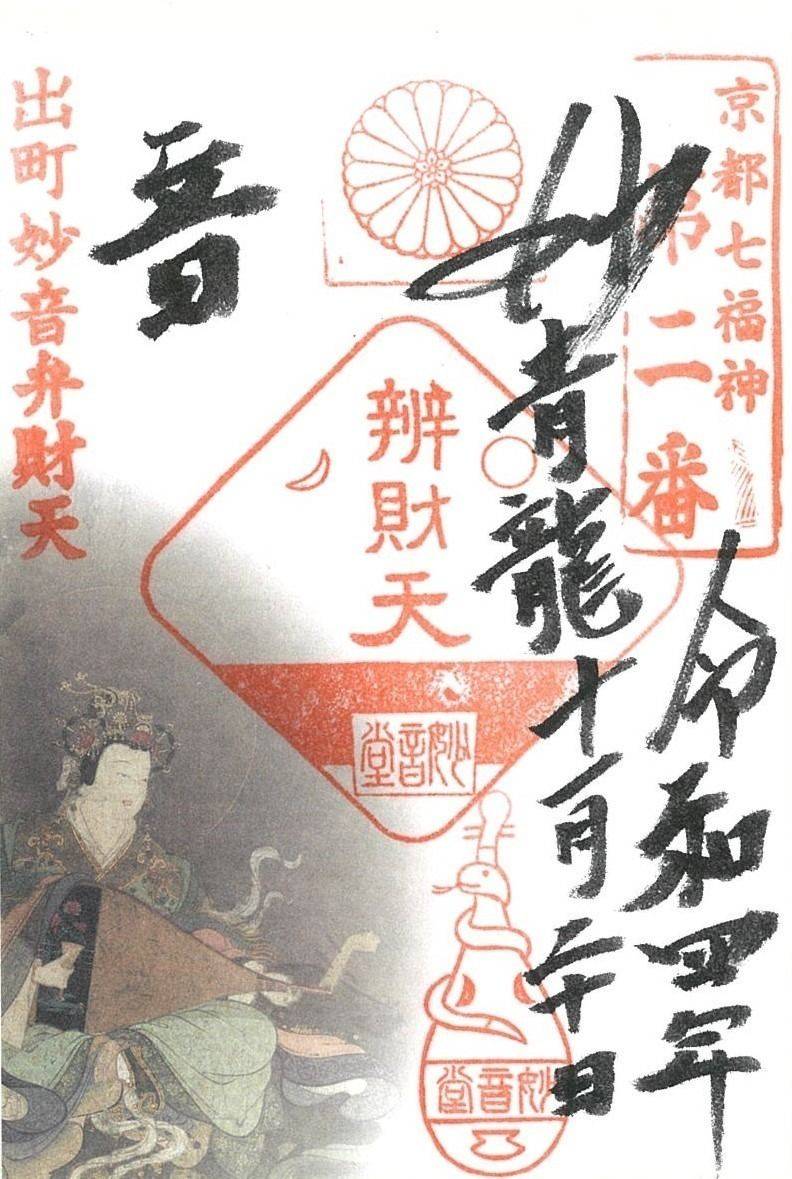 京都七福神
第二番
令和四年
妙
青龍十一月二十日
辨財天
妙音堂
妙音堂
音
出町妙音弁財天